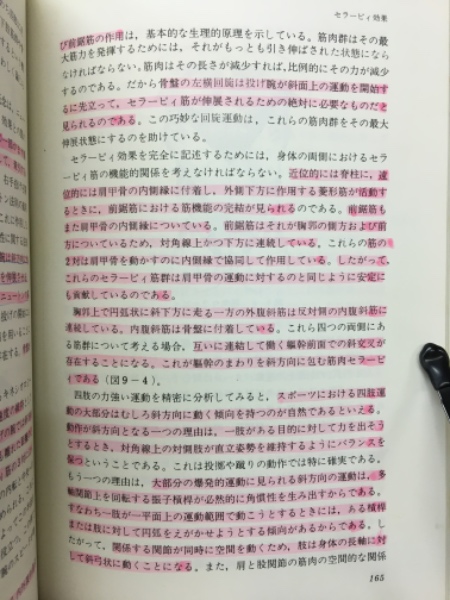 セラーピィ効果
び前鋸筋の作用は，基本的な生理的原理を示している。筋肉群はその最
大筋力を発揮するためには，それがもっとも引き伸ばされた状態になら
なければならない。筋肉はその長さが減少すれば，比例的にその力が減少
するのである。だから骨盤の左横回旋は投げ腕が斜面上の運動を開始す
るに先立って，セラーピィ筋が伸展されるための絶対に必要なものだと
見られるのである。この巧妙な回旋運動は，これらの筋肉群をその最大
伸展状態にするのを助けている。
セラーピィ効果を完全に記述するためには，身体の両側におけるセラ
ーピィ筋の機能的関係を考えなければならない。近位的には脊柱に，遠
位的には肩甲骨の内側縁に付着し，外側下方に作用する菱形筋が活動す
るときに，前鋸筋における筋機能の完結が見られるのである。前鋸筋も
また肩甲骨の内側縁についている。前鋸筋はそれが胸郭の側方および前
方についているため，対角線上かつ下方に連続している。これらの筋の
2対は肩甲骨を動かすのに内側縁で協同して作用している。したがって，
これらのセラーピィ筋群は肩甲骨の運動に対するのと同じように安定に
も貢献しているのである。
胸郭上で円弧状に斜下方に走る一方の外腹斜筋は反対側の内腹斜筋に
連続している。内腹斜筋は骨盤に付着している。これら四つの両側にあ
る筋群について考える場合，互いに連結して働く軀幹前面での斜交叉が
存在することになる。これが軀幹のまわりを斜方向に包む筋肉セラーピ
ィである（図9－4）。
四肢の力強い運動を精密に分析してみると，スポーツにおける四肢運
動の大部分はむしろ斜方向に動く傾向を持つのが自然であるといえる。
動作が斜方向となる一つの理由は，一肢がある目的に対して力を出そう
とするとき，対角線上の対側肢が直立姿勢を維持するようにバランスを
保つということである。これは投擲や蹴りの動作では特に確実である。
もう一つの理由は，大部分の爆発的運動に見られる斜方向の運動は，多
軸関節上を回転する振子槓桿が必然的に角慣性を生み出すからである。
すなわち一肢が一平面上の運動範囲で動こうとするときには，ある槓桿
または肢に対して円弧をえがかせようとする傾向があるからである。し
たがって，関係する関節が同時に空間を動くため，肢は身体の長軸に対
して斜弓状に動くことになる。また，肩と股関節の筋肉の空間的な関係
165